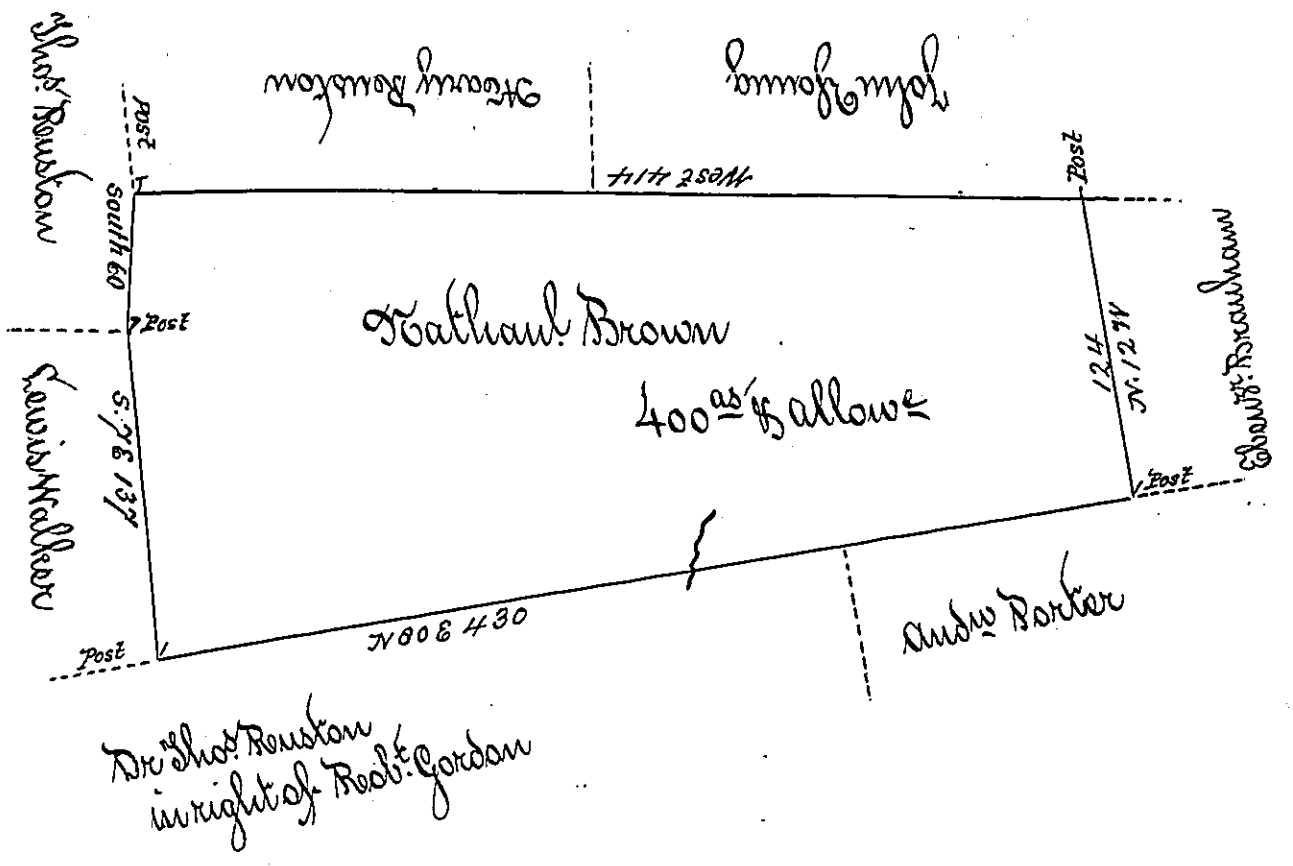 Thos. Ruston
Henry Ruston
John Young
Post
West 414
Post
South 60
Post
Nathanl. Brown
400 as & allowe
124
N. 12 W
Ebenzr. Branham
Lewis Walker
S. 7 E 137
Post
Post
N 80 E 430
Andw Porter
Dr Thos. Ruston
in right of Robt. Gordon